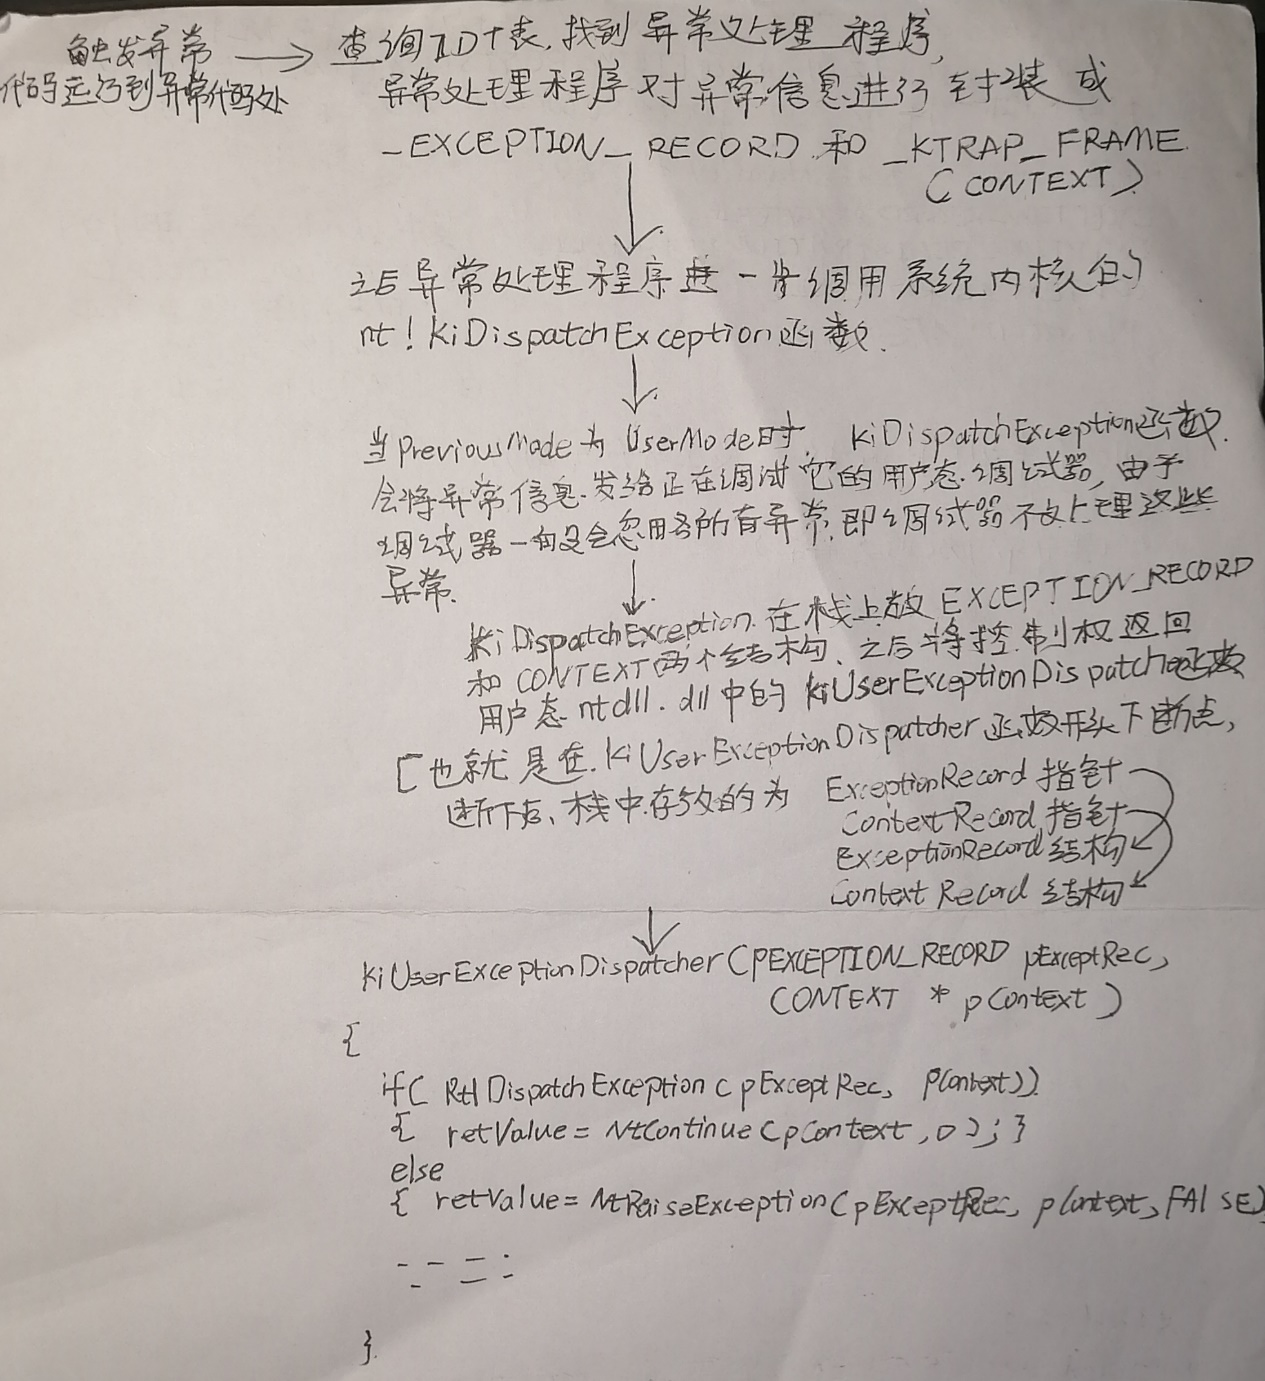 触发异常 → 查询IDT表,找到异常处理程序,
代码运行到异常代码处
异常处理程序对异常信息进行封装成
_EXCEPTION_RECORD 和 _KTRAP_FRAME.
(CONTEXT)
之后异常处理程序进一步调用系统内核的
nt!KiDispatchException函数.
当PreviousMode为UserMode时,KiDispatchException函数.
会将异常信息发给正在调试它的用户态调试器,由于
调试器一般会忽略所有异常,即调试器不处理这些
异常.
KiDispatchException.在栈上放EXCEPTION_RECORD
和CONTEXT两个结构,之后将控制权返回
用户态ntdll.dll中的KiUserExceptionDispatcher函数
[也就是在.KiUserExceptionDispatcher函数开头下断点,
断下后、栈中存放的为 ExceptionRecord 指针
ContextRecord 指针
ExceptionRecord 结构
Context Record 结构
KiUserExceptionDispatcher(PEXCEPTION_RECORD pExceptRec,
CONTEXT * pContext)
{
if( RtlDispatchException(pExceptRec, pContext))
{ retValue = NtContinue(pContext,0); }
else
{ retValue = NtRaiseException(pExceptRec, pContext, FAlSE)
}